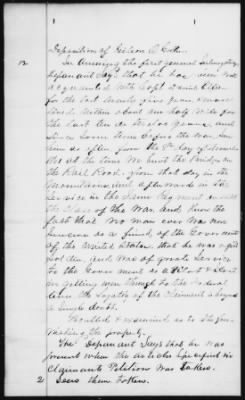 Deposition of
In answering the first general Interrogatory
Deponant Says that he has been well
acquainted with Capt
for the last twenty five years & more
lived within about one half mile for
the last ten or twelve years and
since some time before the War. Saw
him as often from the 9th day of
1861 at the time We burnt the Bridge on
the Rail Road, from that day in the
Mountains, and afterwards in the
Service in the same Regiment
the close of the War and know the
fact that No man ever was more
as a friend of the Government
of the United States, that he was a good
Soldier, and Was of great Service
to the Government as a Pilot &
in getting men through to the Federal
lines the loyalty of the Claimant is beyond
a single doubt.
Recalled & examined as to the fur-
nishing the property.
The Deponant Says that he was
present when the articles specified in
Claimant Petition Was Taken.
2 Seen them Taken.